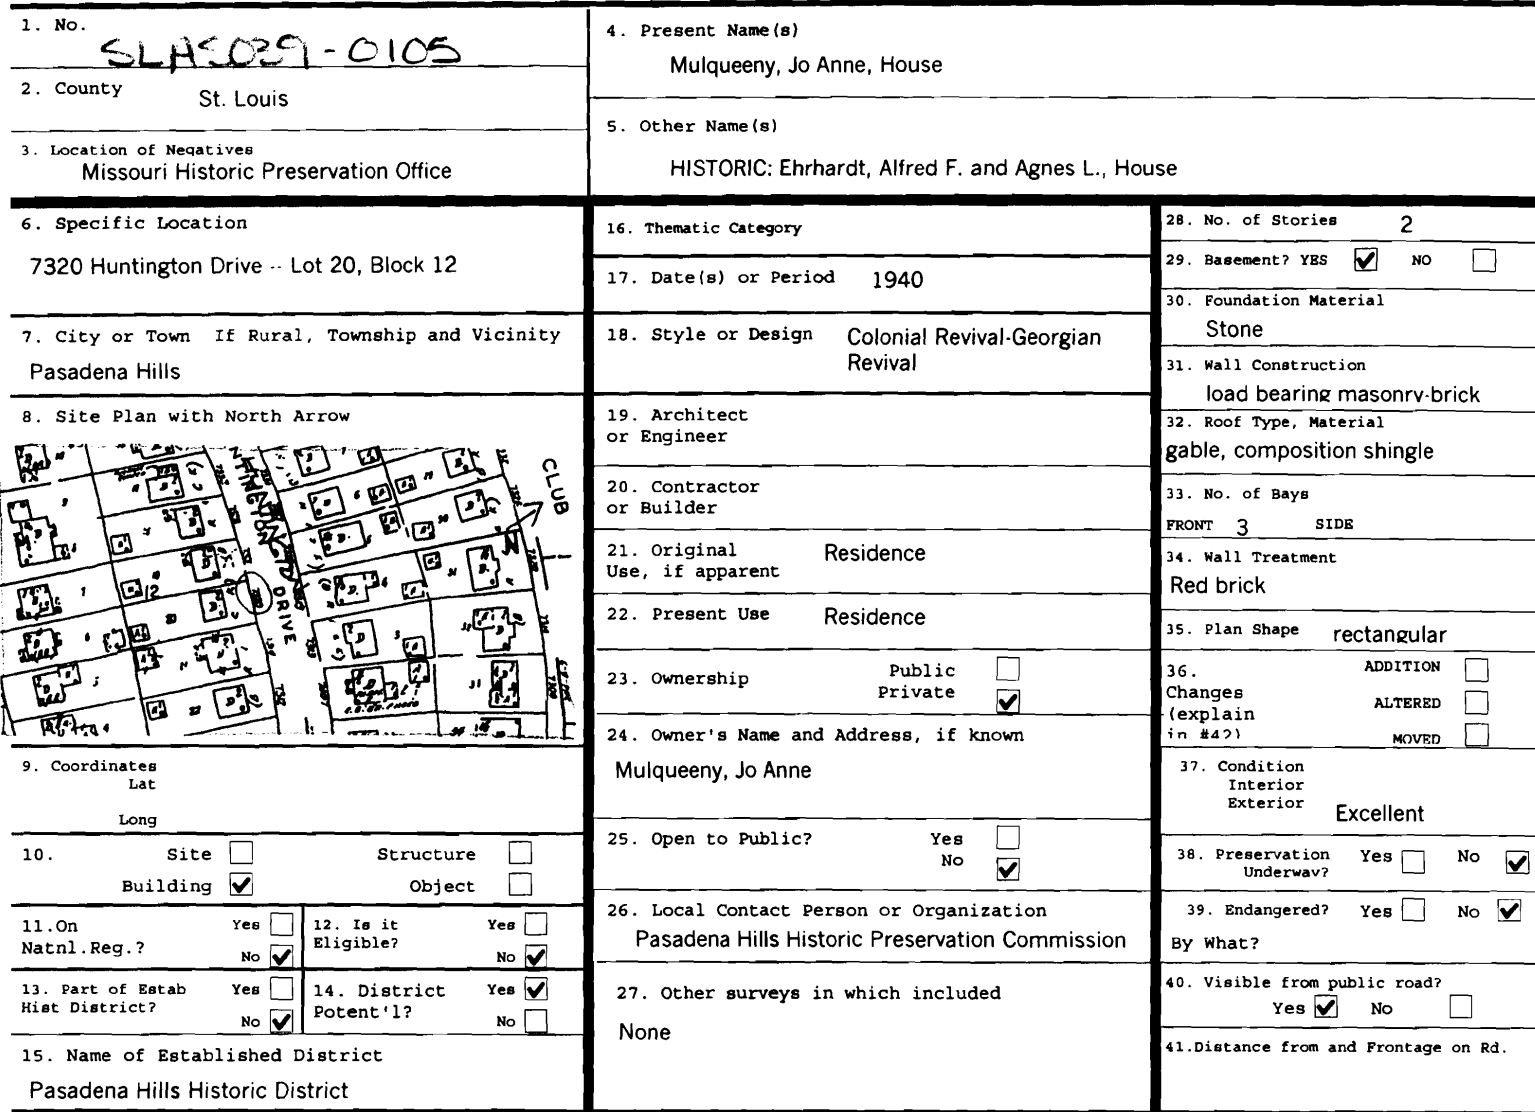 1. No.
SLAS039-0105
2. County
St. Louis
3. Location of Negatives
Missouri Historic Preservation Office
4. Present Name(s)
Mulqueeny, Jo Anne, House
5. Other Name(s)
HISTORIC: Ehrhardt, Alfred F. and Agnes L., House
6. Specific Location
7320 Huntington Drive -- Lot 20, Block 12
7. City or Town If Rural, Township and Vicinity
Pasadena Hills
8. Site Plan with North Arrow
CLUB
DRIVE
9. Coordinates
Lat
Long
10. Site Structure
Building Object
11.On Natnl.Reg.? Yes No
12. Is it Eligible? Yes No
13. Part of Estab Hist District? Yes No
14. District Potent'l? Yes No
15. Name of Established District
Pasadena Hills Historic District
16. Thematic Category
17. Date(s) or Period 1940
18. Style or Design Colonial Revival-Georgian
Revival
19. Architect
or Engineer
20. Contractor
or Builder
21. Original Residence
Use, if apparent
22. Present Use Residence
23. Ownership Public
Private
24. Owner's Name and Address, if known
Mulqueeny, Jo Anne
25. Open to Public? Yes
No
26. Local Contact Person or Organization
Pasadena Hills Historic Preservation Commission
27. Other surveys in which included
None
28. No. of Stories 2
29. Basement? YES NO
30. Foundation Material
Stone
31. Wall Construction
load bearing masonry-brick
32. Roof Type, Material
gable, composition shingle
33. No. of Bays
FRONT 3 SIDE
34. Wall Treatment
Red brick
35. Plan Shape rectangular
36. ADDITION
Changes
(explain ALTERED
in #42) MOVED
37. Condition
Interior
Exterior Excellent
38. Preservation Yes No
Underway?
39. Endangered? Yes No
By What?
40. Visible from public road?
Yes No
41.Distance from and Frontage on Rd.